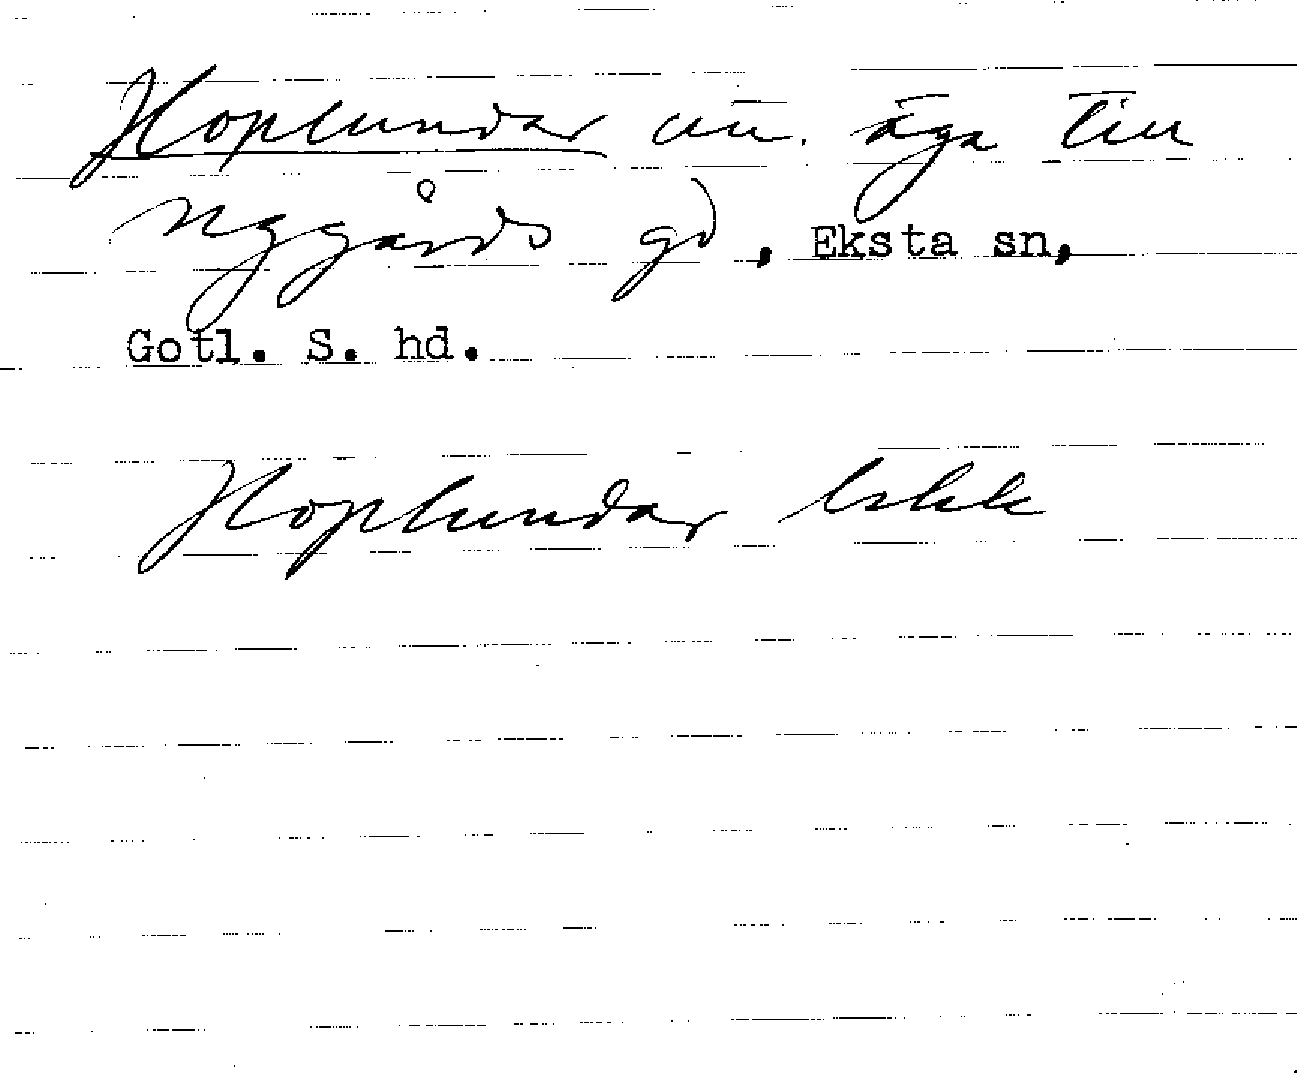 Hoplundar äga till
Nygårds gd, Eksta sn,
Gotl. S. hd.
Hoplundar